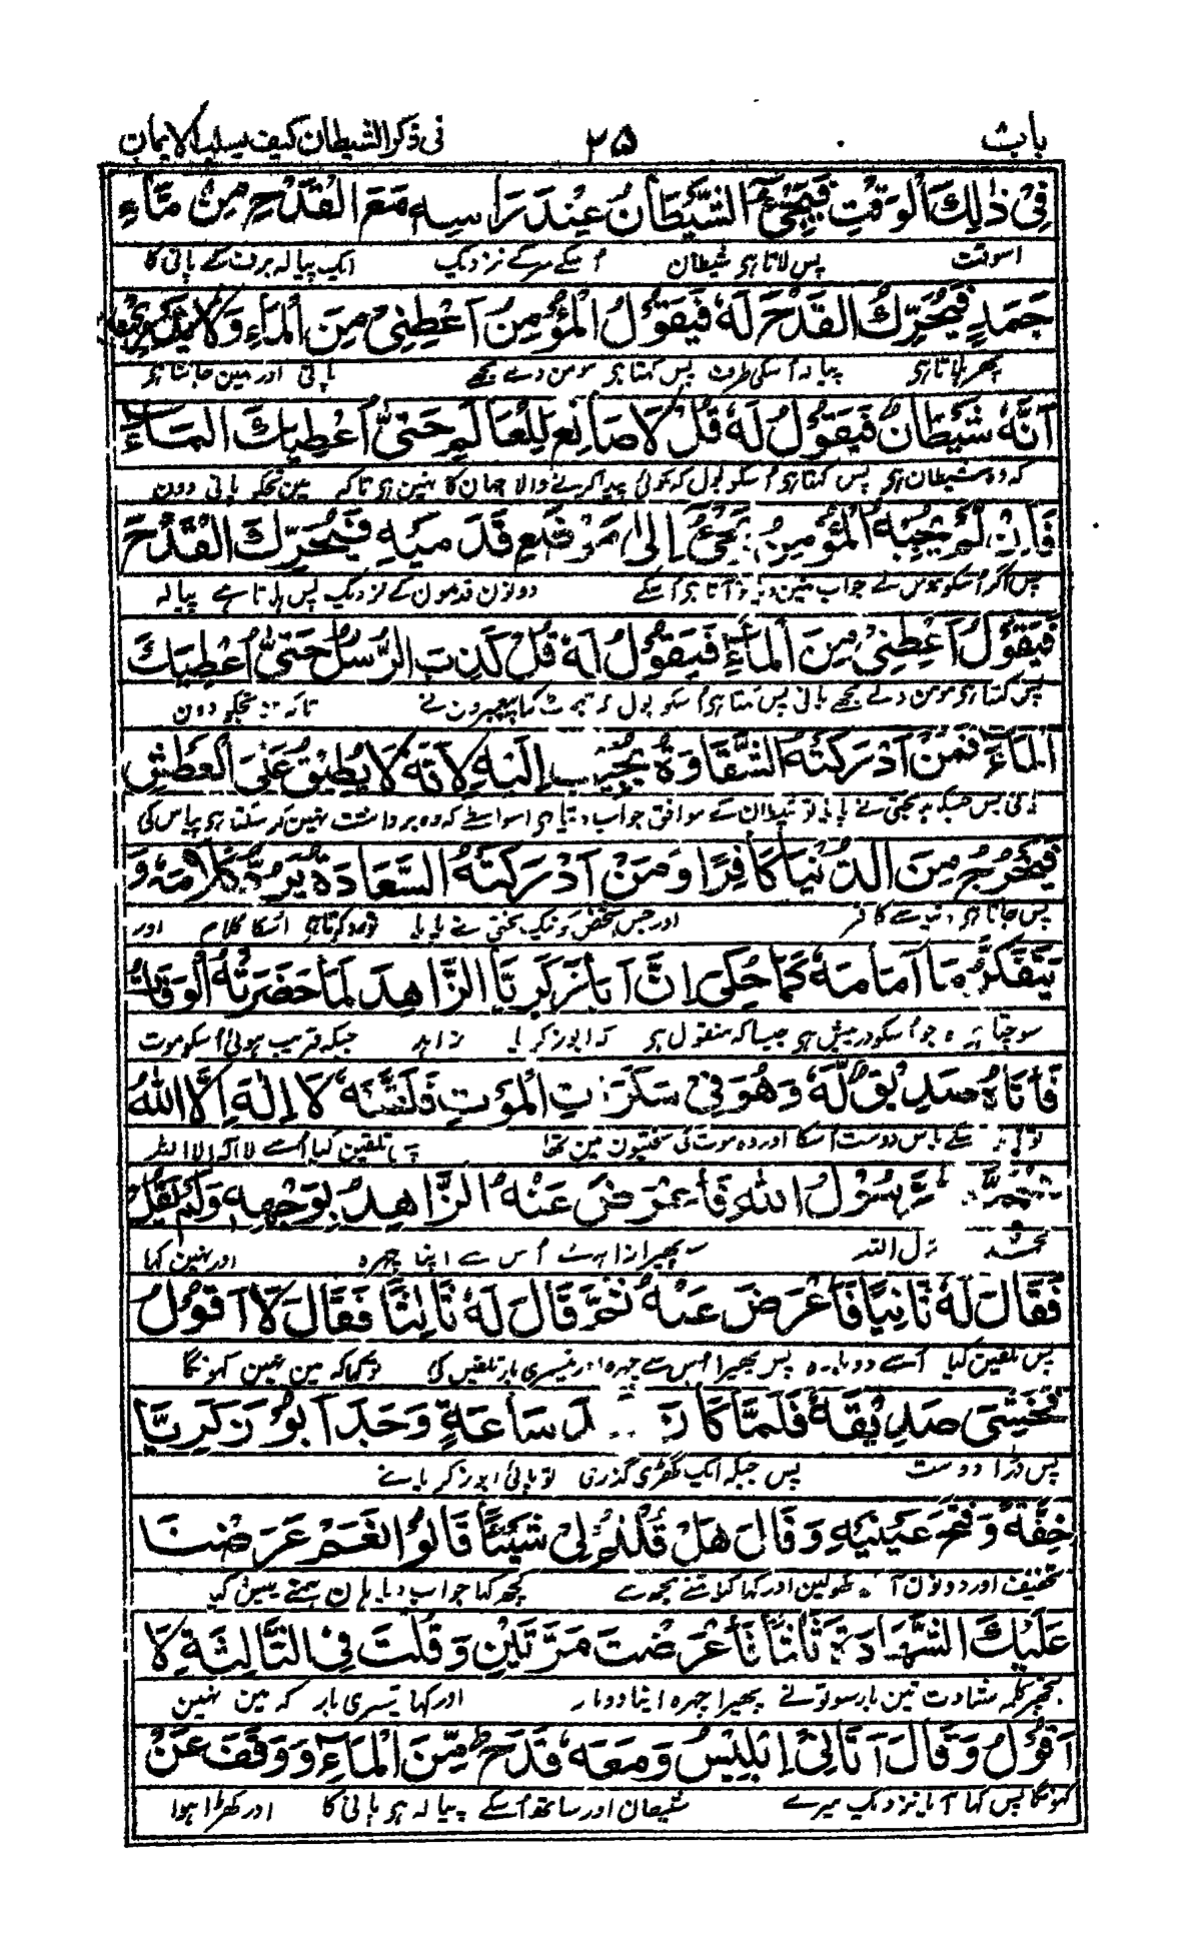 باب ۲۵ فی ذکر الشیطان کیف یسلب الایمان
فِیْ ذٰلِكَ الْوَقْتِ فَیَجِیْٓءُ الشَّیْطَانُ عِنْدَ رَاْسِهٖ مَعَ الْقَدْحِ مِنْ مَّآءِ
اسوقت پس لاتا ہو شیطان اُسکے سرکے نزدیک ایک پیالہ برف کے پانی کا
جَمَدٍ فَیُحَرِّكُ الْقَدْحَ لَهٗ فَیَقُوْلُ الْمُؤْمِنُ اَعْطِنِیْ مِنَ الْمَآءِ وَلَا یَدْرِیْ
پھر ہلاتا ہو پیالہ اُسکی طرف پس کہتا ہو مومن دے مجھے پانی اور نہین جانتا ہو
اَنَّهٗ شَیْطَانٌ فَیَقُوْلُ لَهٗ قُلْ لَا صَانِعَ لِلْعَالَمِ حَتّٰی اُعْطِیَكَ الْمَآءَ
کہ وہ شیطان ہو پس کہتا ہو اُسکو بول کہ کوئی پیدا کرنے والا جہان کا نہین ہو تاکہ مین تجکو پانی دون
فَاِنْ لَمْ یُجِبْهُ الْمُؤْمِنُ یَجِیْٓءُ اِلٰی مَوْضِعِ قَدَمَیْهِ فَیُحَرِّكُ الْقَدْحَ
پس اگر اُسکو مومن نے جواب نہین دیا تو آتا ہو اُسکے دونون قدمون کے نزدیک پس ہلاتا ہے پیالہ
فَیَقُوْلُ اَعْطِنِیْ مِنَ الْمَآءِ فَیَقُوْلُ لَهٗ قُلْ كَذَبَ الرُّسُلُ حَتّٰی اُعْطِیَكَ
پس کہتا ہو مومن دے مجھے پانی پس کہتا ہو اُسکو بول کہ جھوٹ کہا پیغمبرون نے تاکہ تجکو دون
الْمَآءَ فَمَنْ اَدْرَكَتْهُ الشَّقَاوَةُ یُجِیْبُ اِلَیْهِ لِاَنَّهٗ لَا یُطِیْقُ عَلَی الْعَطَشِ
پانی پس جسکو بدبختی نے پایا تو شیطان کے موافق جواب دیتا ہو اسواسطے کہ وہ برداشت نہین کر سکتا ہو پیاس کی
فَیَخْرُجُ مِنَ الدُّنْیَا كَافِرًا وَمَنْ اَدْرَكَتْهُ السَّعَادَةُ یَرُدُّ كَلَامَهٗ وَ
پس جاتا ہو دنیا سے کافر اور جس شخص کو نیک بختی نے پایا تو رد کرتا ہو اسکا کلام اور
یَتَفَكَّرُ مَا اَمَامَهٗ كَمَا حُكِیَ اِنَّ اَبَا زَكَرِیَّا الزَّاهِدَ لَمَا حَضَرَتْهُ الْوَفَاتُ
سوچتا ہے وہ جو اُسکو درپیش ہو جیسا کہ منقول ہو کہ ابو زکریا زاہد جبکہ قریب ہوئی اُسکو موت
فَاَتَاهُ صَدِیْقٌ لَّهٗ وَهُوَ فِیْ سَكَرَاتِ الْمَوْتِ فَلَقَّنَهٗ لَا اِلٰهَ اِلَّا اللّٰهُ
پاس دوست اُسکا اور وہ موت کی سختیون مین تھا تلقین کیا اُسے لا الہ الا اللہ
رَسُوْلُ اللّٰهِ فَاَعْرَضَ عَنْهُ الزَّاهِدُ بِوَجْهِهٖ وَلَمْ یَقُلْ
محمد رسول اللہ پھیرا زاہد نے اُس سے اپنا چہرہ اور نہین کہا
فَقَالَ لَهٗ ثَانِیًا فَاَعْرَضَ عَنْهُ ثُمَّ قَالَ لَهٗ ثَالِثًا فَقَالَ لَا اَقُوْلُ
پس تلقین کیا اُسے دوبارہ پس پھیرا اُس سے چہرہ اور تیسری بار تلقین کی تو کہا کہ مین نہین کہونگا
فَخَشِیَ صَدِیْقُهٗ فَلَمَّا كَانَ سَاعَةٍ وَجَدَ اَبُوْ زَكَرِیَّا
پس ڈرا دوست پس جبکہ ایک گھڑی گذری تو پائی ابو زکریا نے
خِفَّةً وَفَتَحَ عَیْنَیْهِ وَقَالَ هَلْ قُلْتُمْ لِیْ شَیْئًا قَالُوْا نَعَمْ عَرَضْنَا
تخفیف اور دونون آنکھ کھولین اور کہا کیا تمنے مجھ سے کچھ کہا جواب دیا ہان ہمنے پیش کیا
عَلَیْكَ الشَّهَادَةَ ثَلَاثًا فَاَعْرَضْتَ مَرَّتَیْنِ وَقُلْتَ فِی الثَّالِثَةِ لَا
تجھپر کلمہ شہادت تین بار سو تونے پھیرا چہرہ اپنا دو بار اور کہا تیسری بار کہ مین نہین
اَقُوْلُ وَقَالَ اَتَانِیْ اِبْلِیْسُ وَمَعَهٗ قَدَحٌ مِّنَ الْمَآءِ وَوَقَفَ عَنْ
کہونگا پس کہا آیا نزدیک میرے شیطان اور ساتھ اُسکے پیالہ ہو پانی کا اور کھڑا ہوا